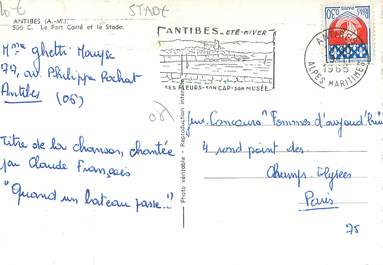 10 €
STADE
ANTIBES (A.-M.)
506 C. Le Fort Carré et le Stade.
Mme Ghetti Mauyse
79, av Philippe Rochat
Antibes
(06)
Titre de la chanson, chantée
par Claude François
"Quand un bateau passe..."
06
Photo véritable - Reproduction
ANTIBES - ETE-HIVER
SES FLEURS - SON CAP - SON MUSÉE.
0,30
ANTIBES
1965
ALPES MARITIMES
Jeu Concours "Femmes d'aujourd'hui
4 rond point des
Champs Elysées
Paris
75